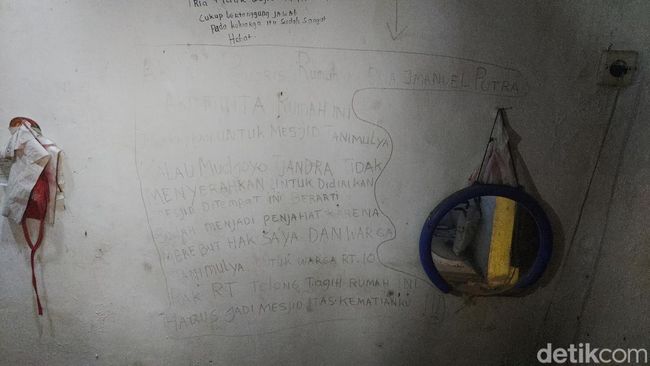 Cukup bertanggung jawab
Pada keluarga itu sudah sangat
Hebat.
Rumah EMANUEL PUTRA
RUMAH INI
UNTUK MESJID TANIMULYA
KALAU Mudjoyo TJANDRA TIDAK
MENYERAHKAN UNTUK DIDIRIKAN
MESJID DITEMPAT INI BERARTI
MENJADI PENJAHAT KARENA
MEREBUT HAK SAYA DAN WARGA
TANIMULYA UNTUK WARGA RT.10
PAK RT Tolong Tagih RUMAH INI
HARUS JADI MESJID ATAS KEMATIANKU !!!
detikcom